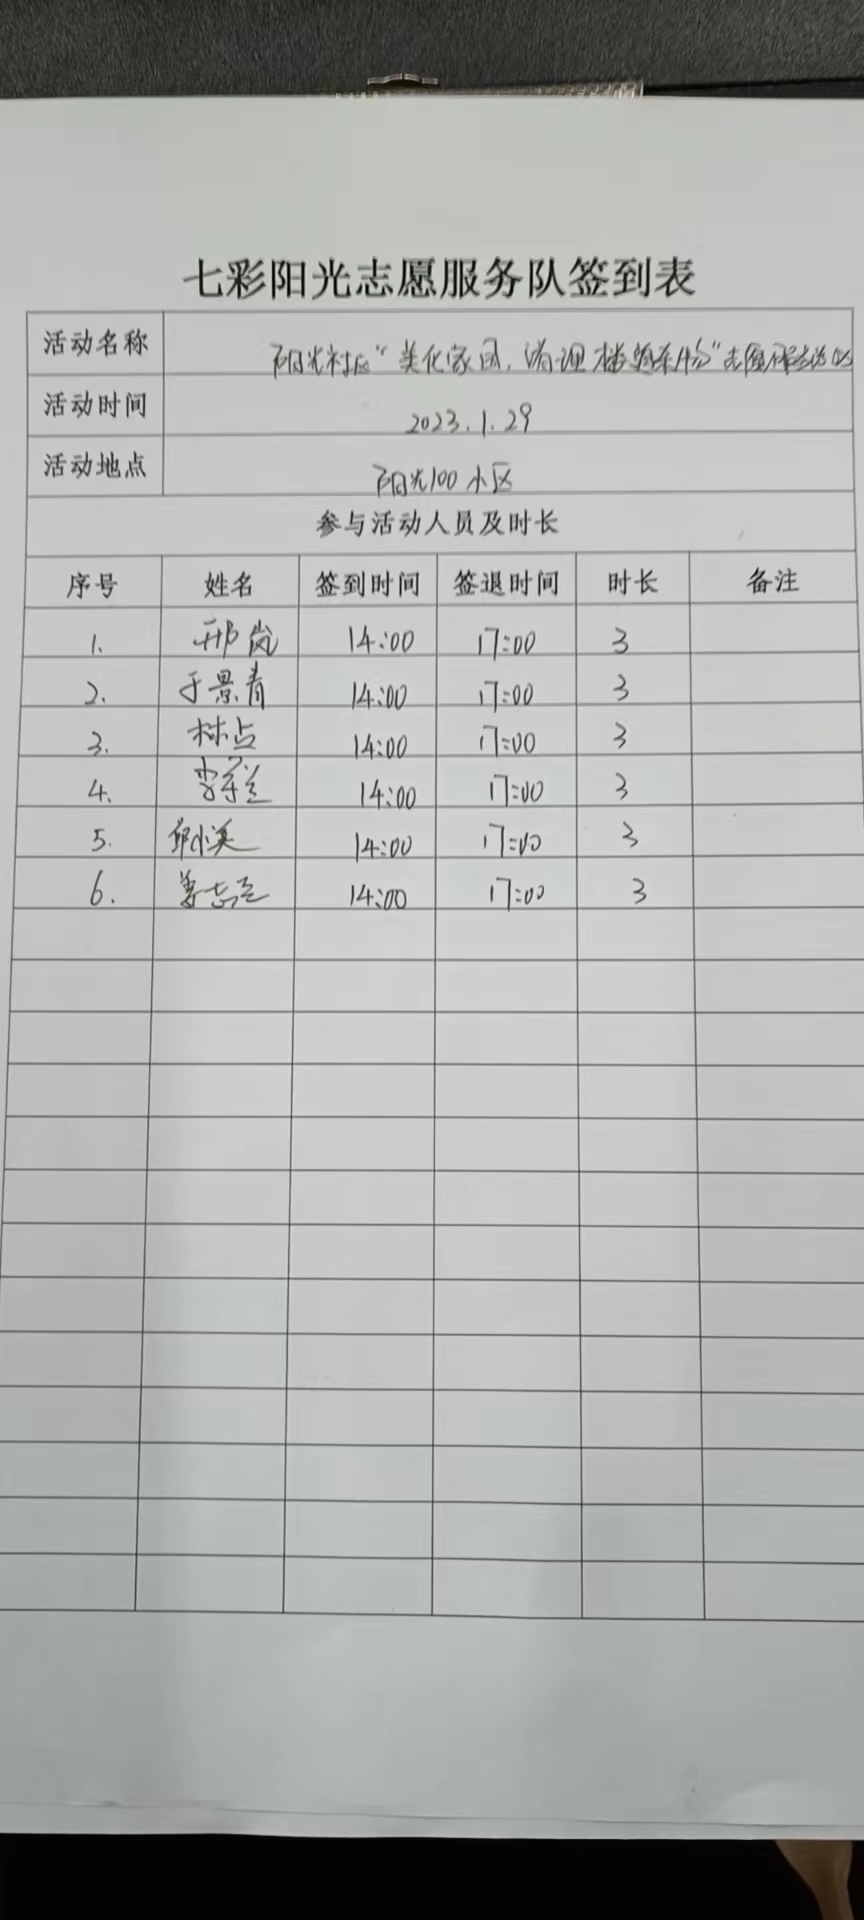 七彩阳光志愿服务队签到表
活动名称 阳光社区“美化家园，清理楼道杂物”志愿服务活动
活动时间 2023.1.29
活动地点 阳光100小区
参与活动人员及时长
序号 姓名 签到时间 签退时间 时长 备注
1. 邢岚 14:00 17:00 3
2. 于景青 14:00 17:00 3
3. 林点 14:00 17:00 3
4. 14:00 17:00 3
5. 邱小溪 14:00 17:00 3
6. 姜志 14:00 17:00 3